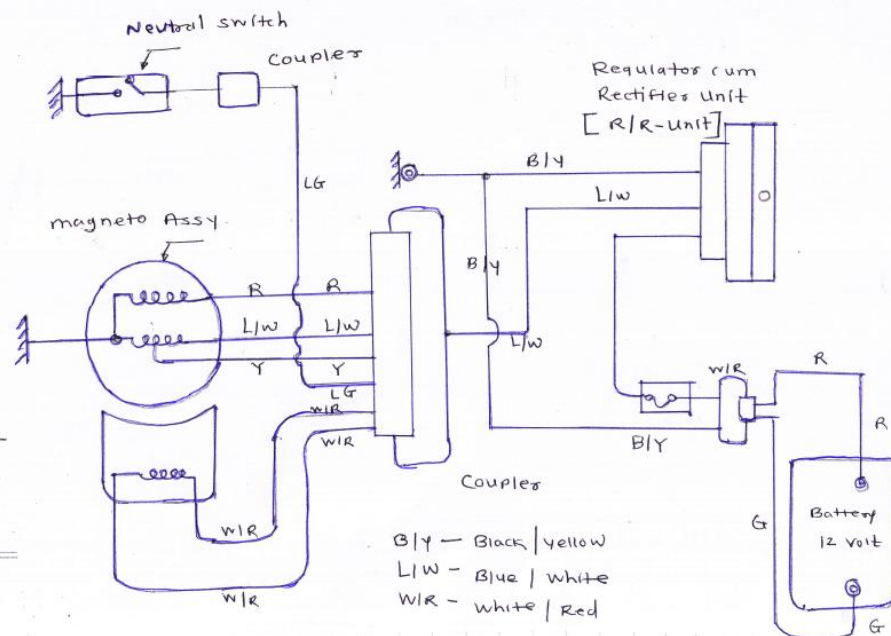 Neutral switch
Coupler
Regulator cum
Rectifier unit
[ R/R-Unit]
B/Y
L/W
LG
magneto Assy
B/Y
R
R
L/W
L/W
Y
Y
LG
L/W
W/R
W/R
W/R
R
R
B/Y
Coupler
G
Battery
12 volt
W/R
W/R
G
B/Y — Black/yellow
L/W - Blue/white
W/R - white/Red